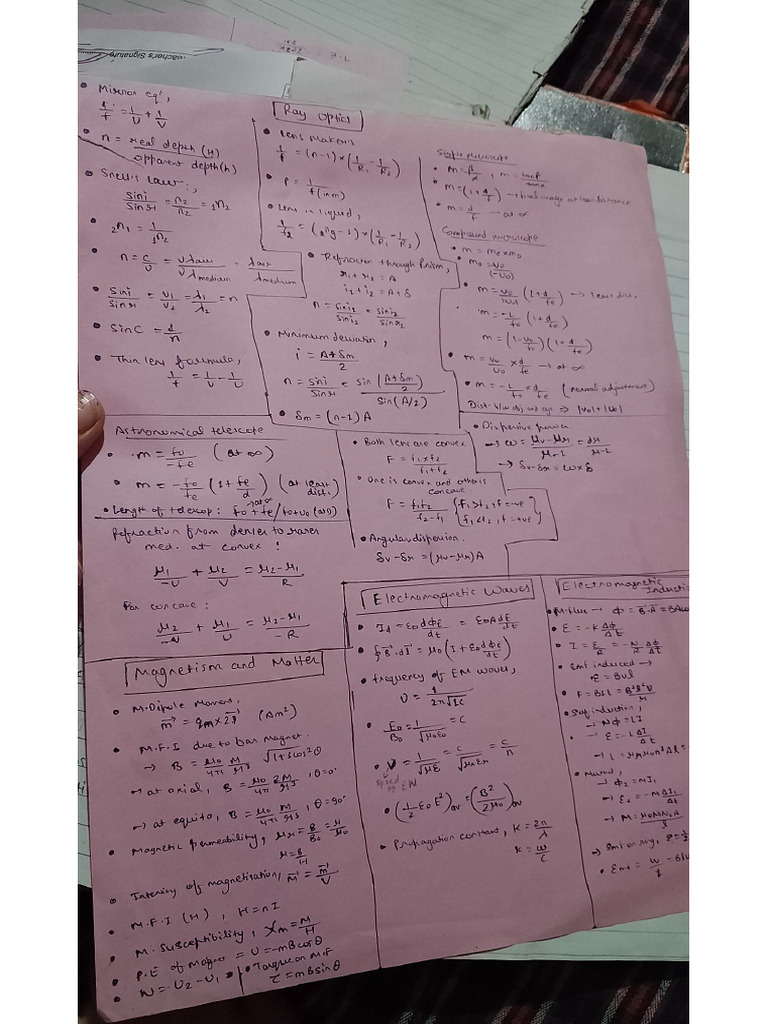 Teacher's Signature
• Mirror eqⁿ,
1/f = 1/u + 1/v
• n = real depth (H) / apparent depth (h)
• Snell's Law:,
sin i / sin r = n2/n2 = 1n2
• 2n1 = 1/1n2
• n = c/v = vλair / vλmedium = λair / λmedium
• sin i / sin r = v1/v2 = λ1/λ2 = n
• sin C =
• Thin lens formula,
1/f = 1/v - 1/u
Ray optics
• Lens makers
1/f = (n-1) × (1/R1 - 1/R2)
• P = 1/f (in m)
• Lens in liquid,
= (ng - 1) × (1/R1 - 1/R2)
• Refraction through Prism,
r1 + r2 = A
i1 + i2 = A + δ
n = sin i1 / sin i2 = sin i2 / sin r2
• Minimum deviation,
i = A + δm / 2
n = sin i / sin r = sin (A + δm / 2) / sin (A/2)
• δm = (n-1) A
Simple microscope
• m = β/α , m = tan β / tan α
• m = (1 + d/f) → final image at least distance
• m = d/f → at ∞
Compound microscope
• m = me × mo
• mo = vo / (-uo)
• m = vo/|uo| (1 + d/fe) → least dis.
• m = -L/fo (1 + d/fe)
m = (1 - vo/fo) (1 + d/fe)
• m = vo/uo × d/fe → at ∞
• m = -L/fo × d/fe (normal adjustment)
Dist. b/w obj and eye ⇒ |vo| + |ue|
Astronomical telescope
• m = fo/-fe (at ∞)
• m = -fo/fe (1 + fe/d) (at least dist.)
• Length of telescop: fo + fe → at ∞ / fo + uo (at D)
Refraction from denser to rarer
med. at convex:
μ1/-u + μ2/v = μ2 - μ1 / R
For concave:
μ2/-u + μ1/v = μ2 - μ1 / -R
• Both lens are convex
F = f1 × f2 / f1 + f2
• One is convex and other is
concave
F = f1 f2 / f2 - f1 {f1 > f2, F = -ve
f1 < f2, F = +ve}
• Angular dispersion.
δv - δr = (μv - μr) A
• Dispersive power
→ ω = μv - μr / μ - 1 = dμ / μ - 1
→ δv - δr = ω × δ
Magnetism and Matter
• M. Dipole Moment,
m = qm × 2l (Am²)
• M.F.I due to bar magnet.
→ B = μ0/4π M/r³ √1+3cos²θ
→ at axial, B = μ0/4π 2M/r³, θ = 0°
→ at equito, B = μ0/4π M/r³, θ = 90°
• Magnetic permeability, μr = B/B0 = μ/μ0
μ = B/H
• Intensity of magnetisation, M = m/V
• M.F.I (H), H = nI
• M. Susceptibility, χm = M/H
• P.E of Magnet = U = -mB cos θ
• W = U2 - U1
• Torque on M.F
τ = mB sin θ
Electromagnetic Waves
• Id = ε0 dφE/dt = ε0A dE/dt
• ∮B.dl = μ0 (I + ε0 dφE/dt)
• frequency of EM waves,
υ = 1 / 2π√LC
• E0/B0 = 1/√μ0ε0 = c
• v = 1/√με = c/√μrεr = c/n
speed of EW
• (1/2 ε0 E²)av = (B²/2μ0)av
• Propagation constant, K = 2π/λ
K = ω/c
Electromagnetic
Induction
• M. flux → φ = B.A = BA
• ε = -K Δφ/Δt
• I = ε/R = -N/R Δφ/Δt
• Emf induced →
ε = Bvl
• F = BIl = B²l²v / r
• Self induction,
→ Nφ = LI
• → ε = -L ΔI/Δt
• Mutual,
→ φ2 = MI1
→ ε2 = -M ΔI1/Δt